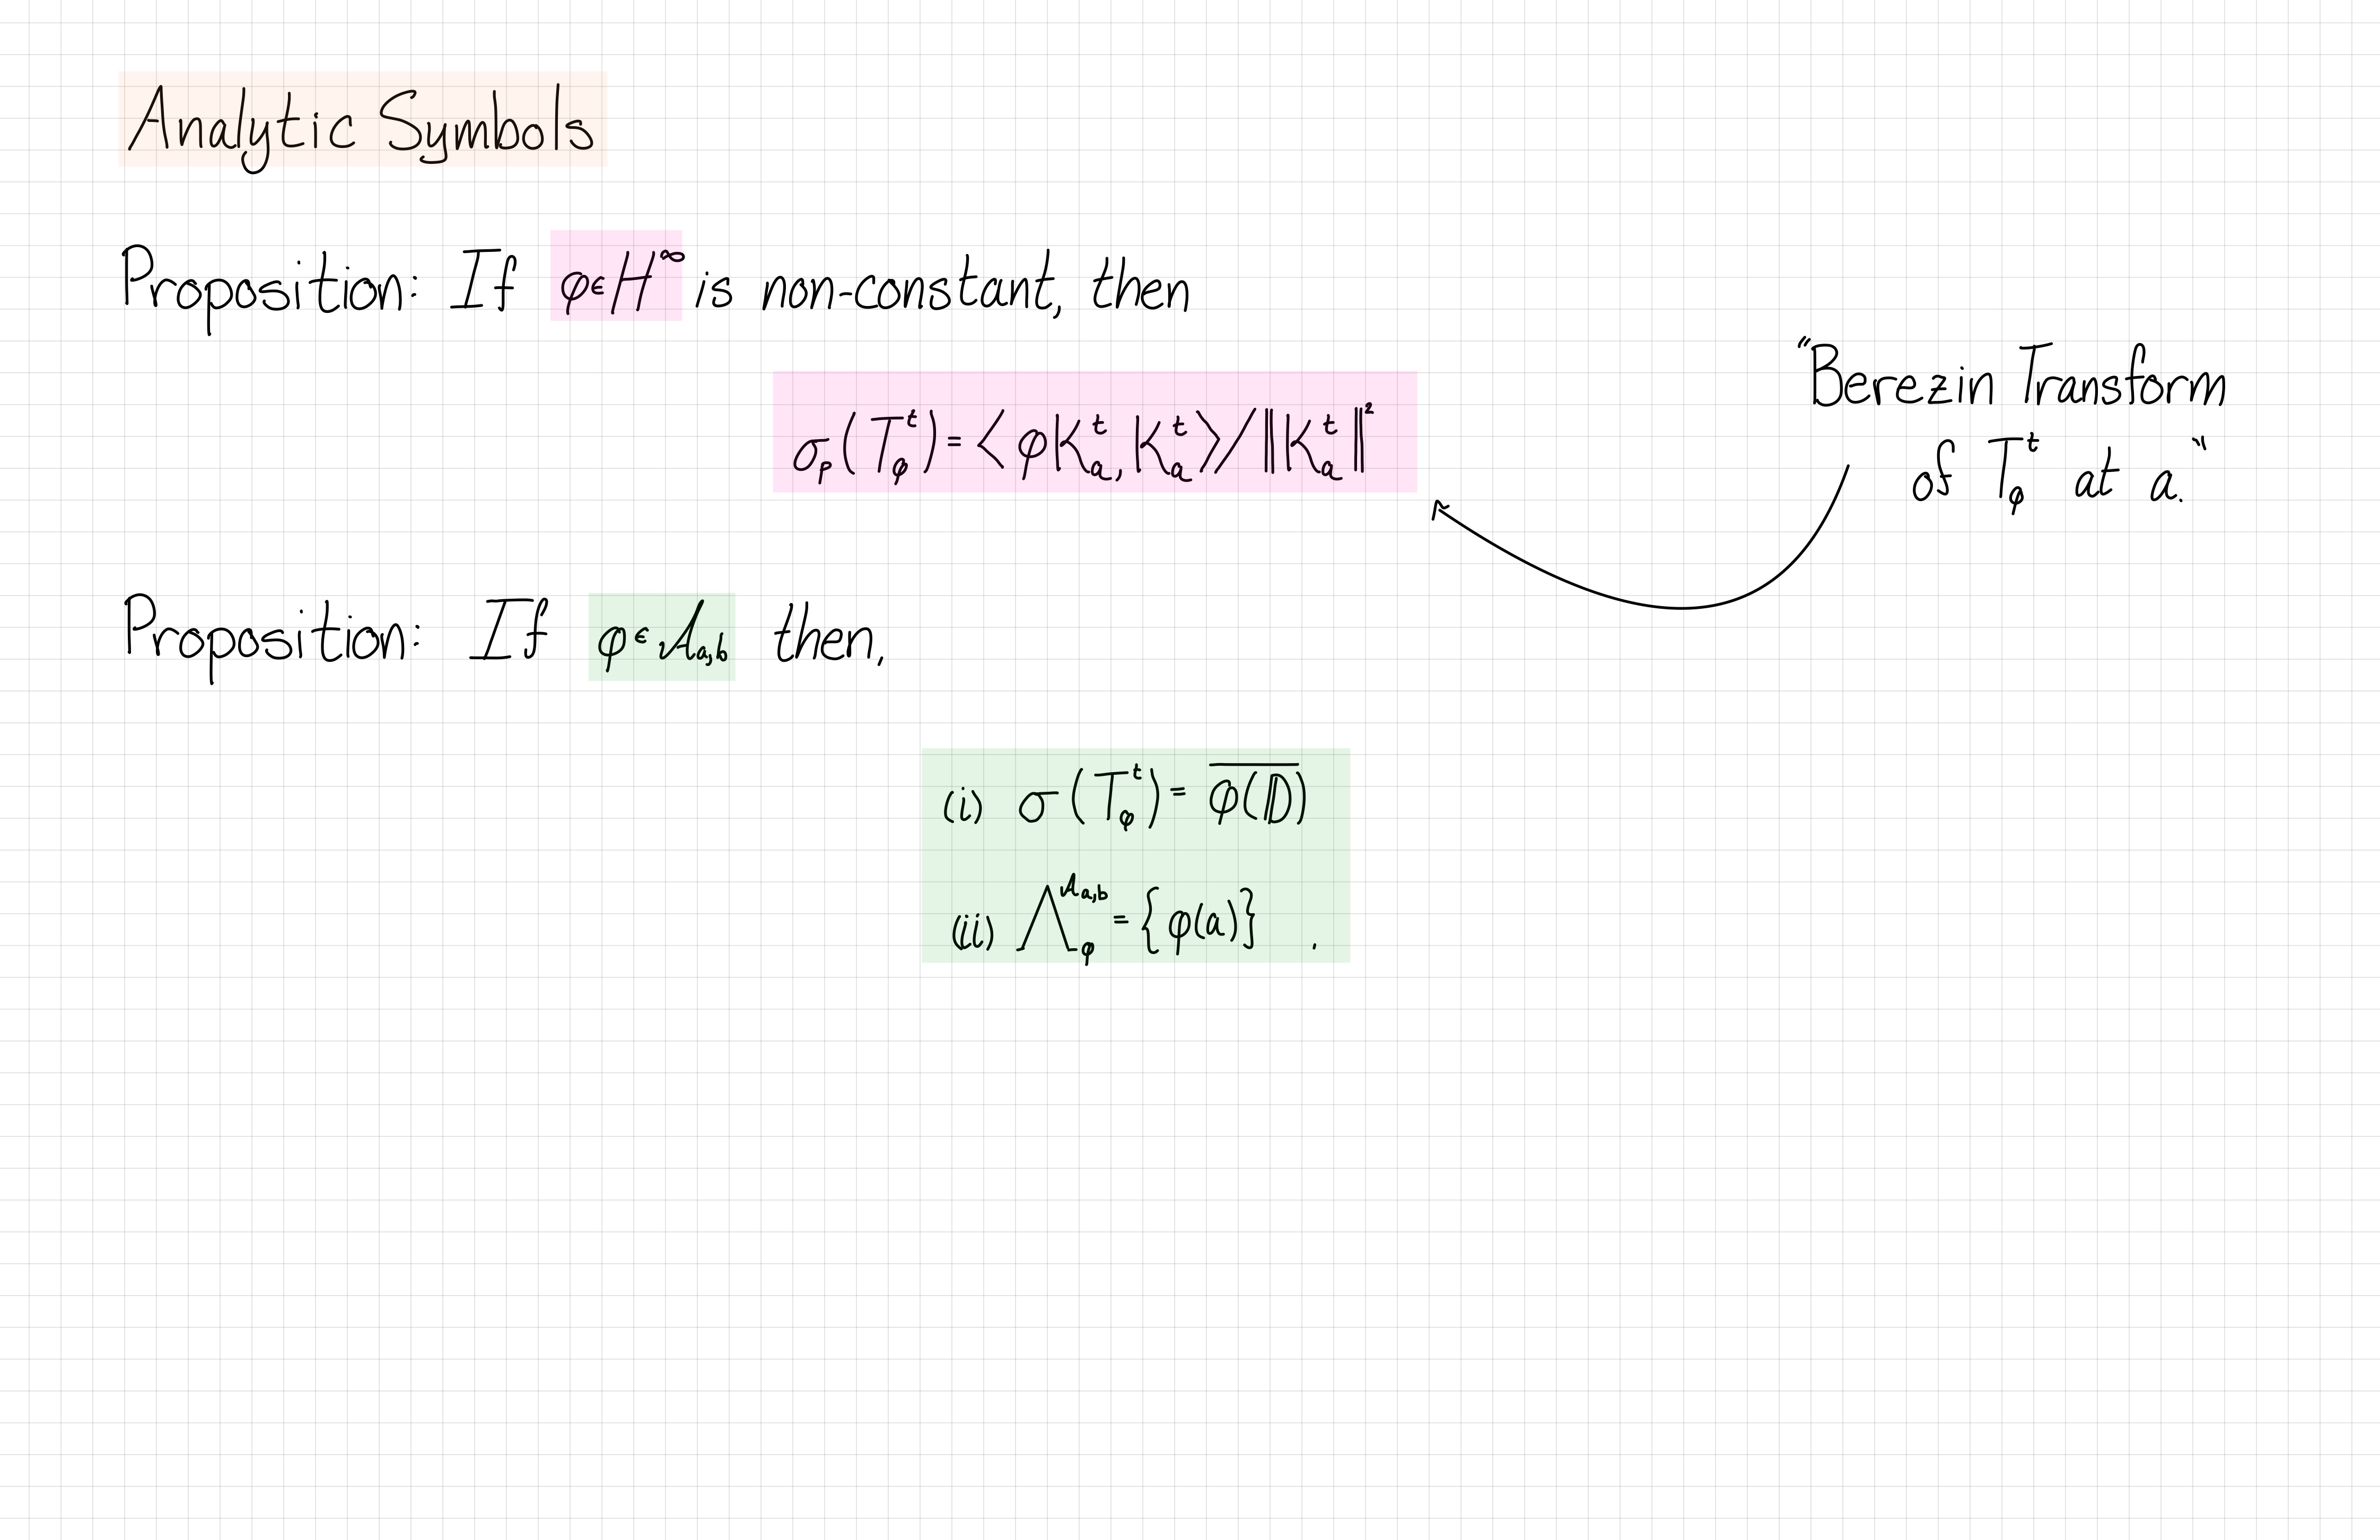 Analytic Symbols
Proposition: If φ∈H^∞ is non-constant, then
σ_p(T_φ^t) = ⟨φK_a^t, K_a^t⟩/‖K_a^t‖²
"Berezin Transform
of T_φ^t at a."
Proposition: If φ∈𝒜_{a,b} then,
(i) σ(T_φ^t) = \overline{φ(𝔻)}
(ii) Λ_φ^{𝒜_{a,b}} = {φ(a)} .